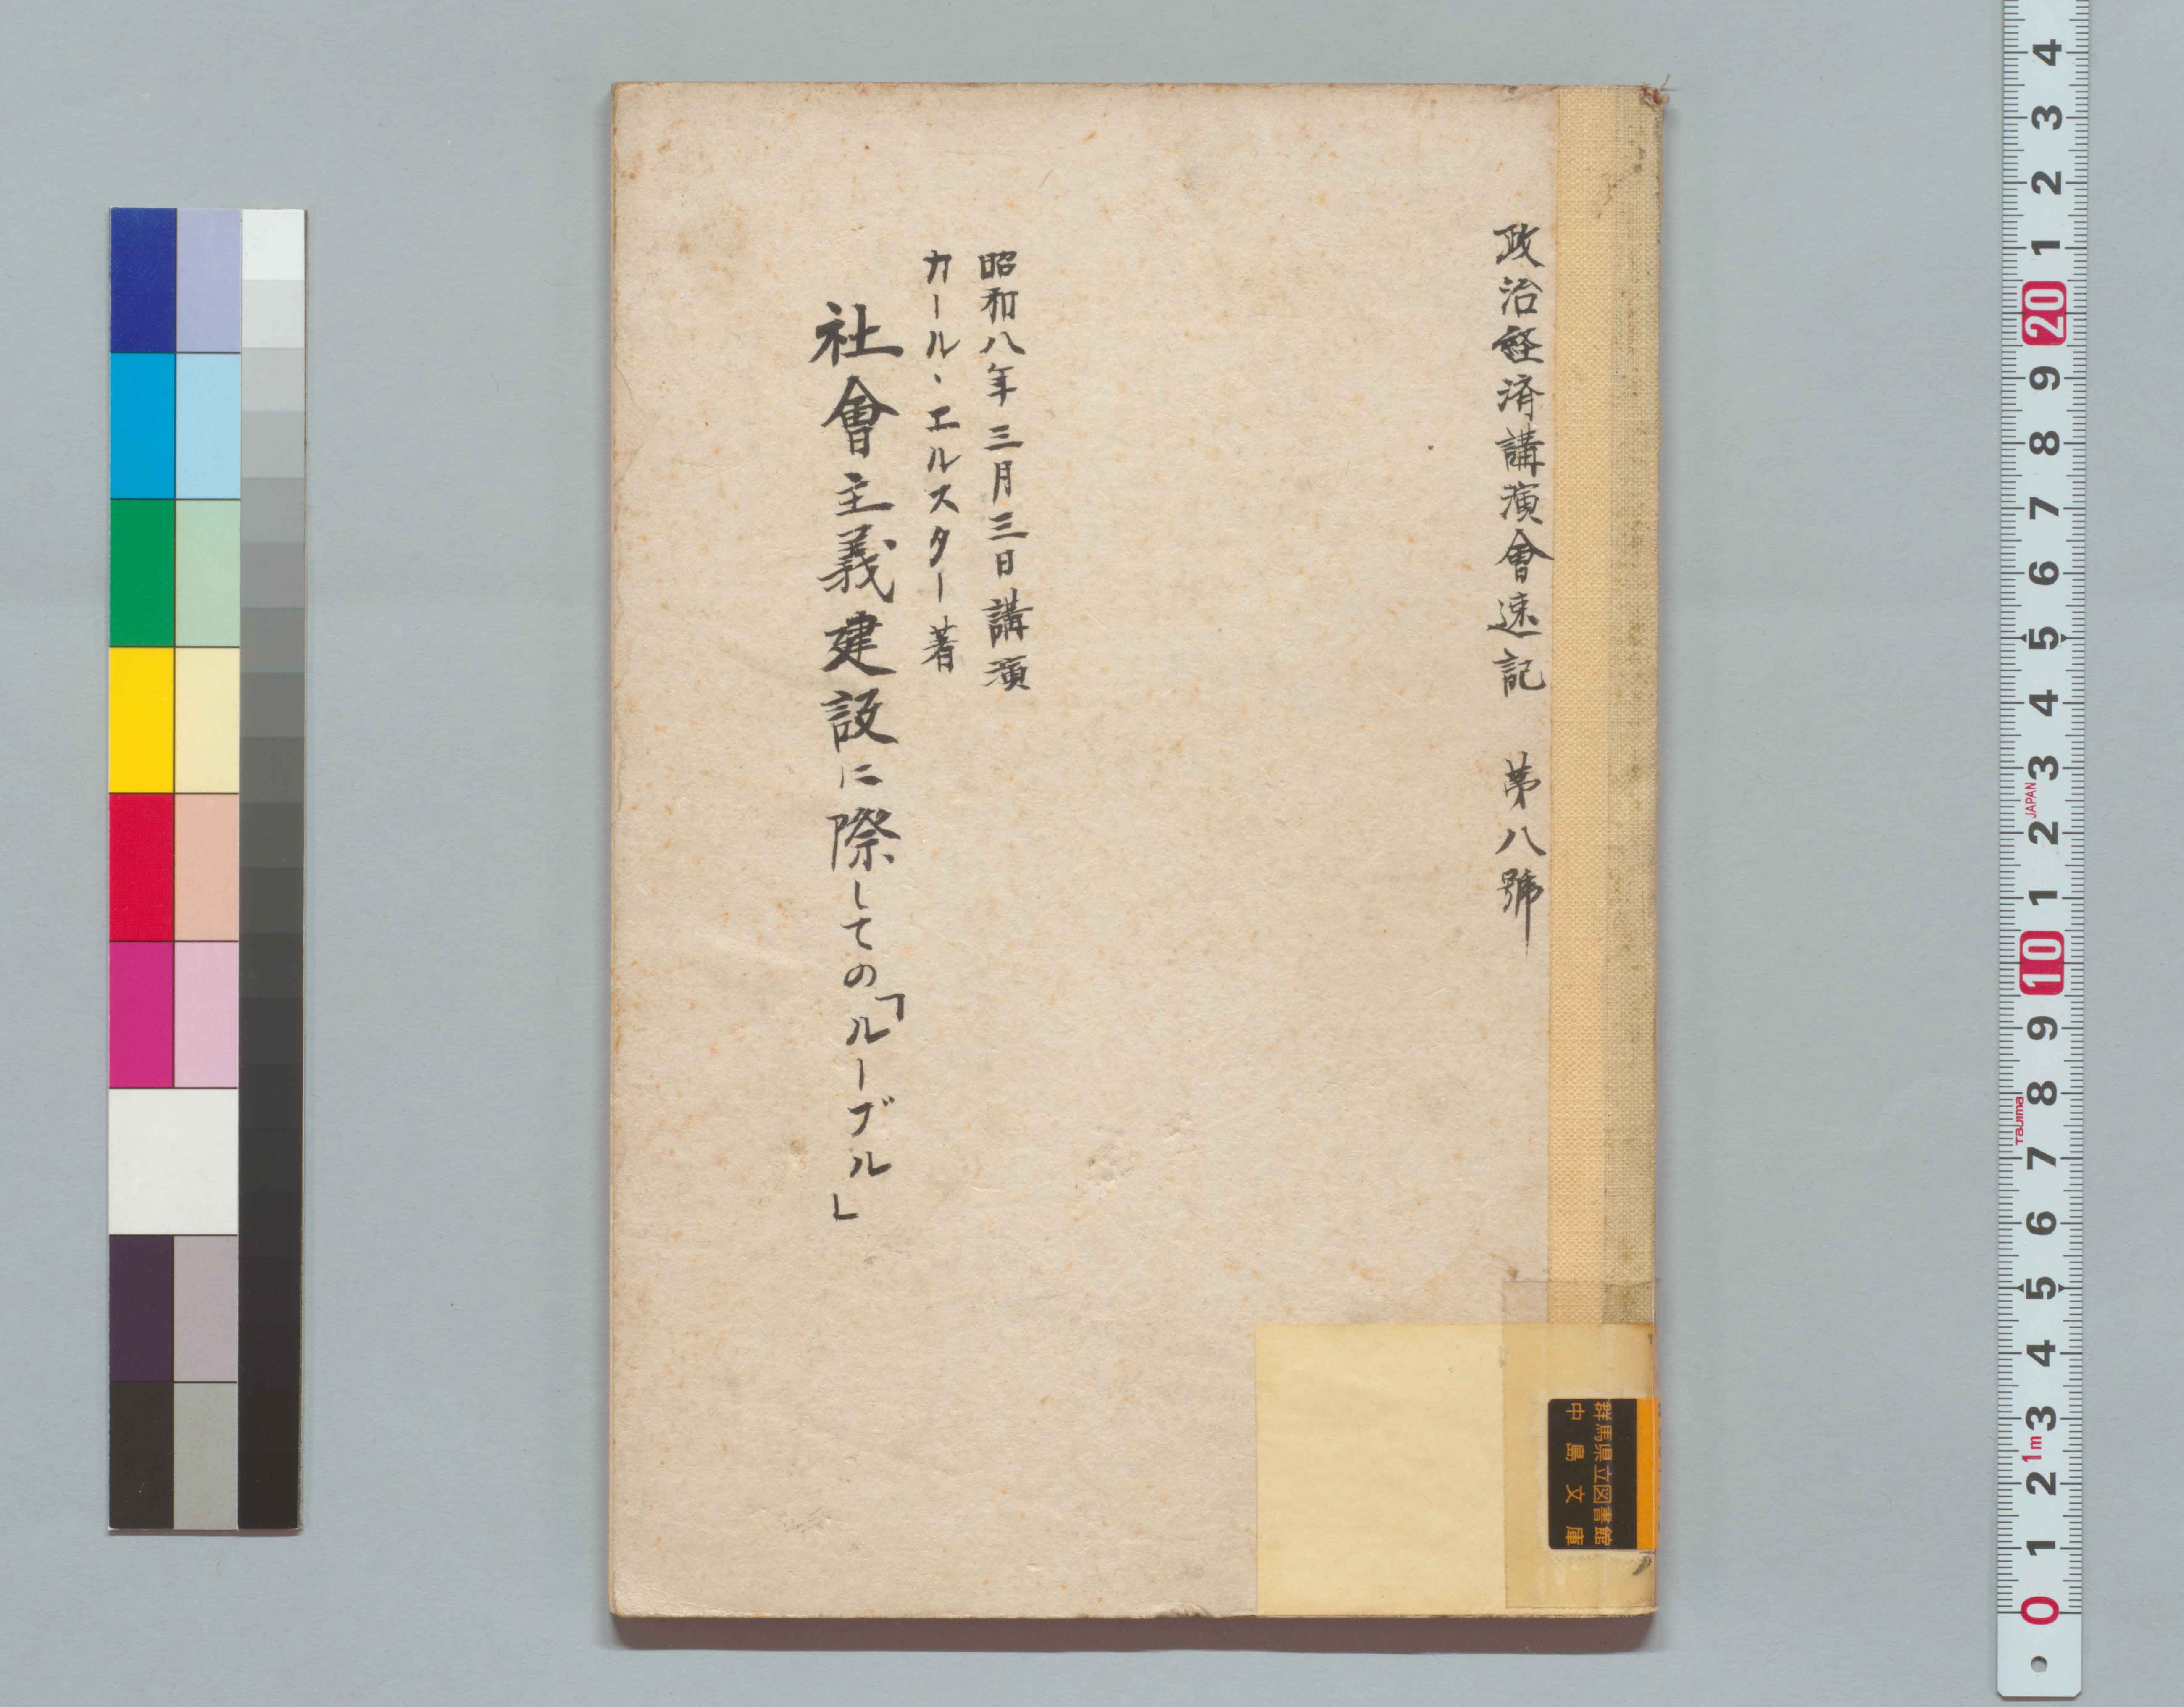 政治経済講演會速記　第八號
昭和八年三月三日講演
カール、エルスター著
社會主義建設に際しての「ルーブル」
群馬県立図書館
中島文庫
4
3
2
1
20
9
8
7
6
5
4
3
JAPAN
2
1
10
9
8
Tajima
7
6
5
4
3
1m
2
1
0